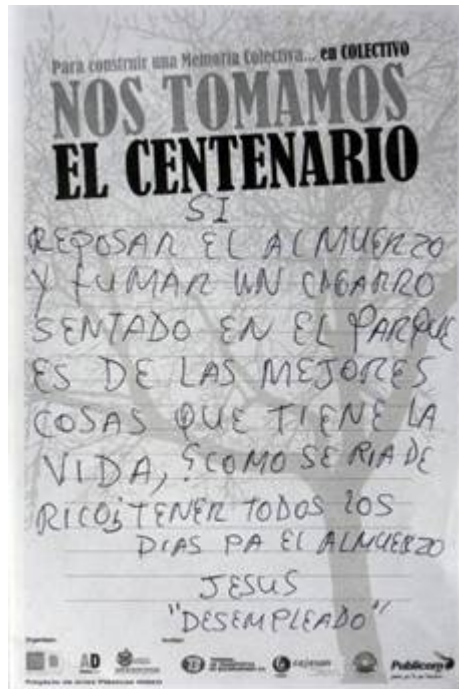 Para construir una Memoria Colectiva... en COLECTIVO
NOS TOMAMOS
EL CENTENARIO
SI
REPOSAR EL ALMUERZO
Y FUMAR UN CIGARRO
SENTADO EN EL PARQUE
ES DE LAS MEJORES
COSAS QUE TIENE LA
VIDA, ?COMO SERIA DE
RICO¿ TENER TODOS LOS
DIAS PA EL ALMUERZO
JESUS
"DESEMPLEADO"
AD
Publicom